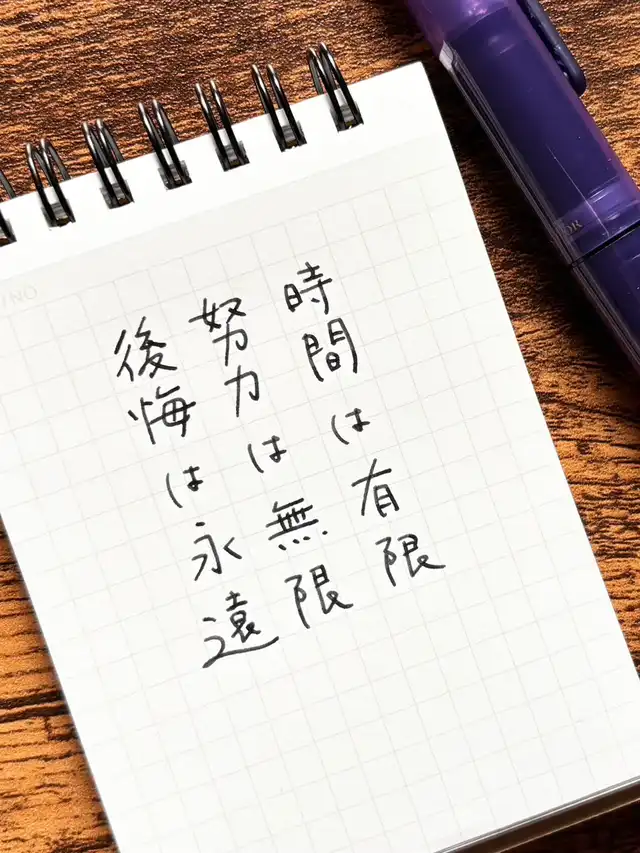 時間は有限
努力は無限
後悔は永遠